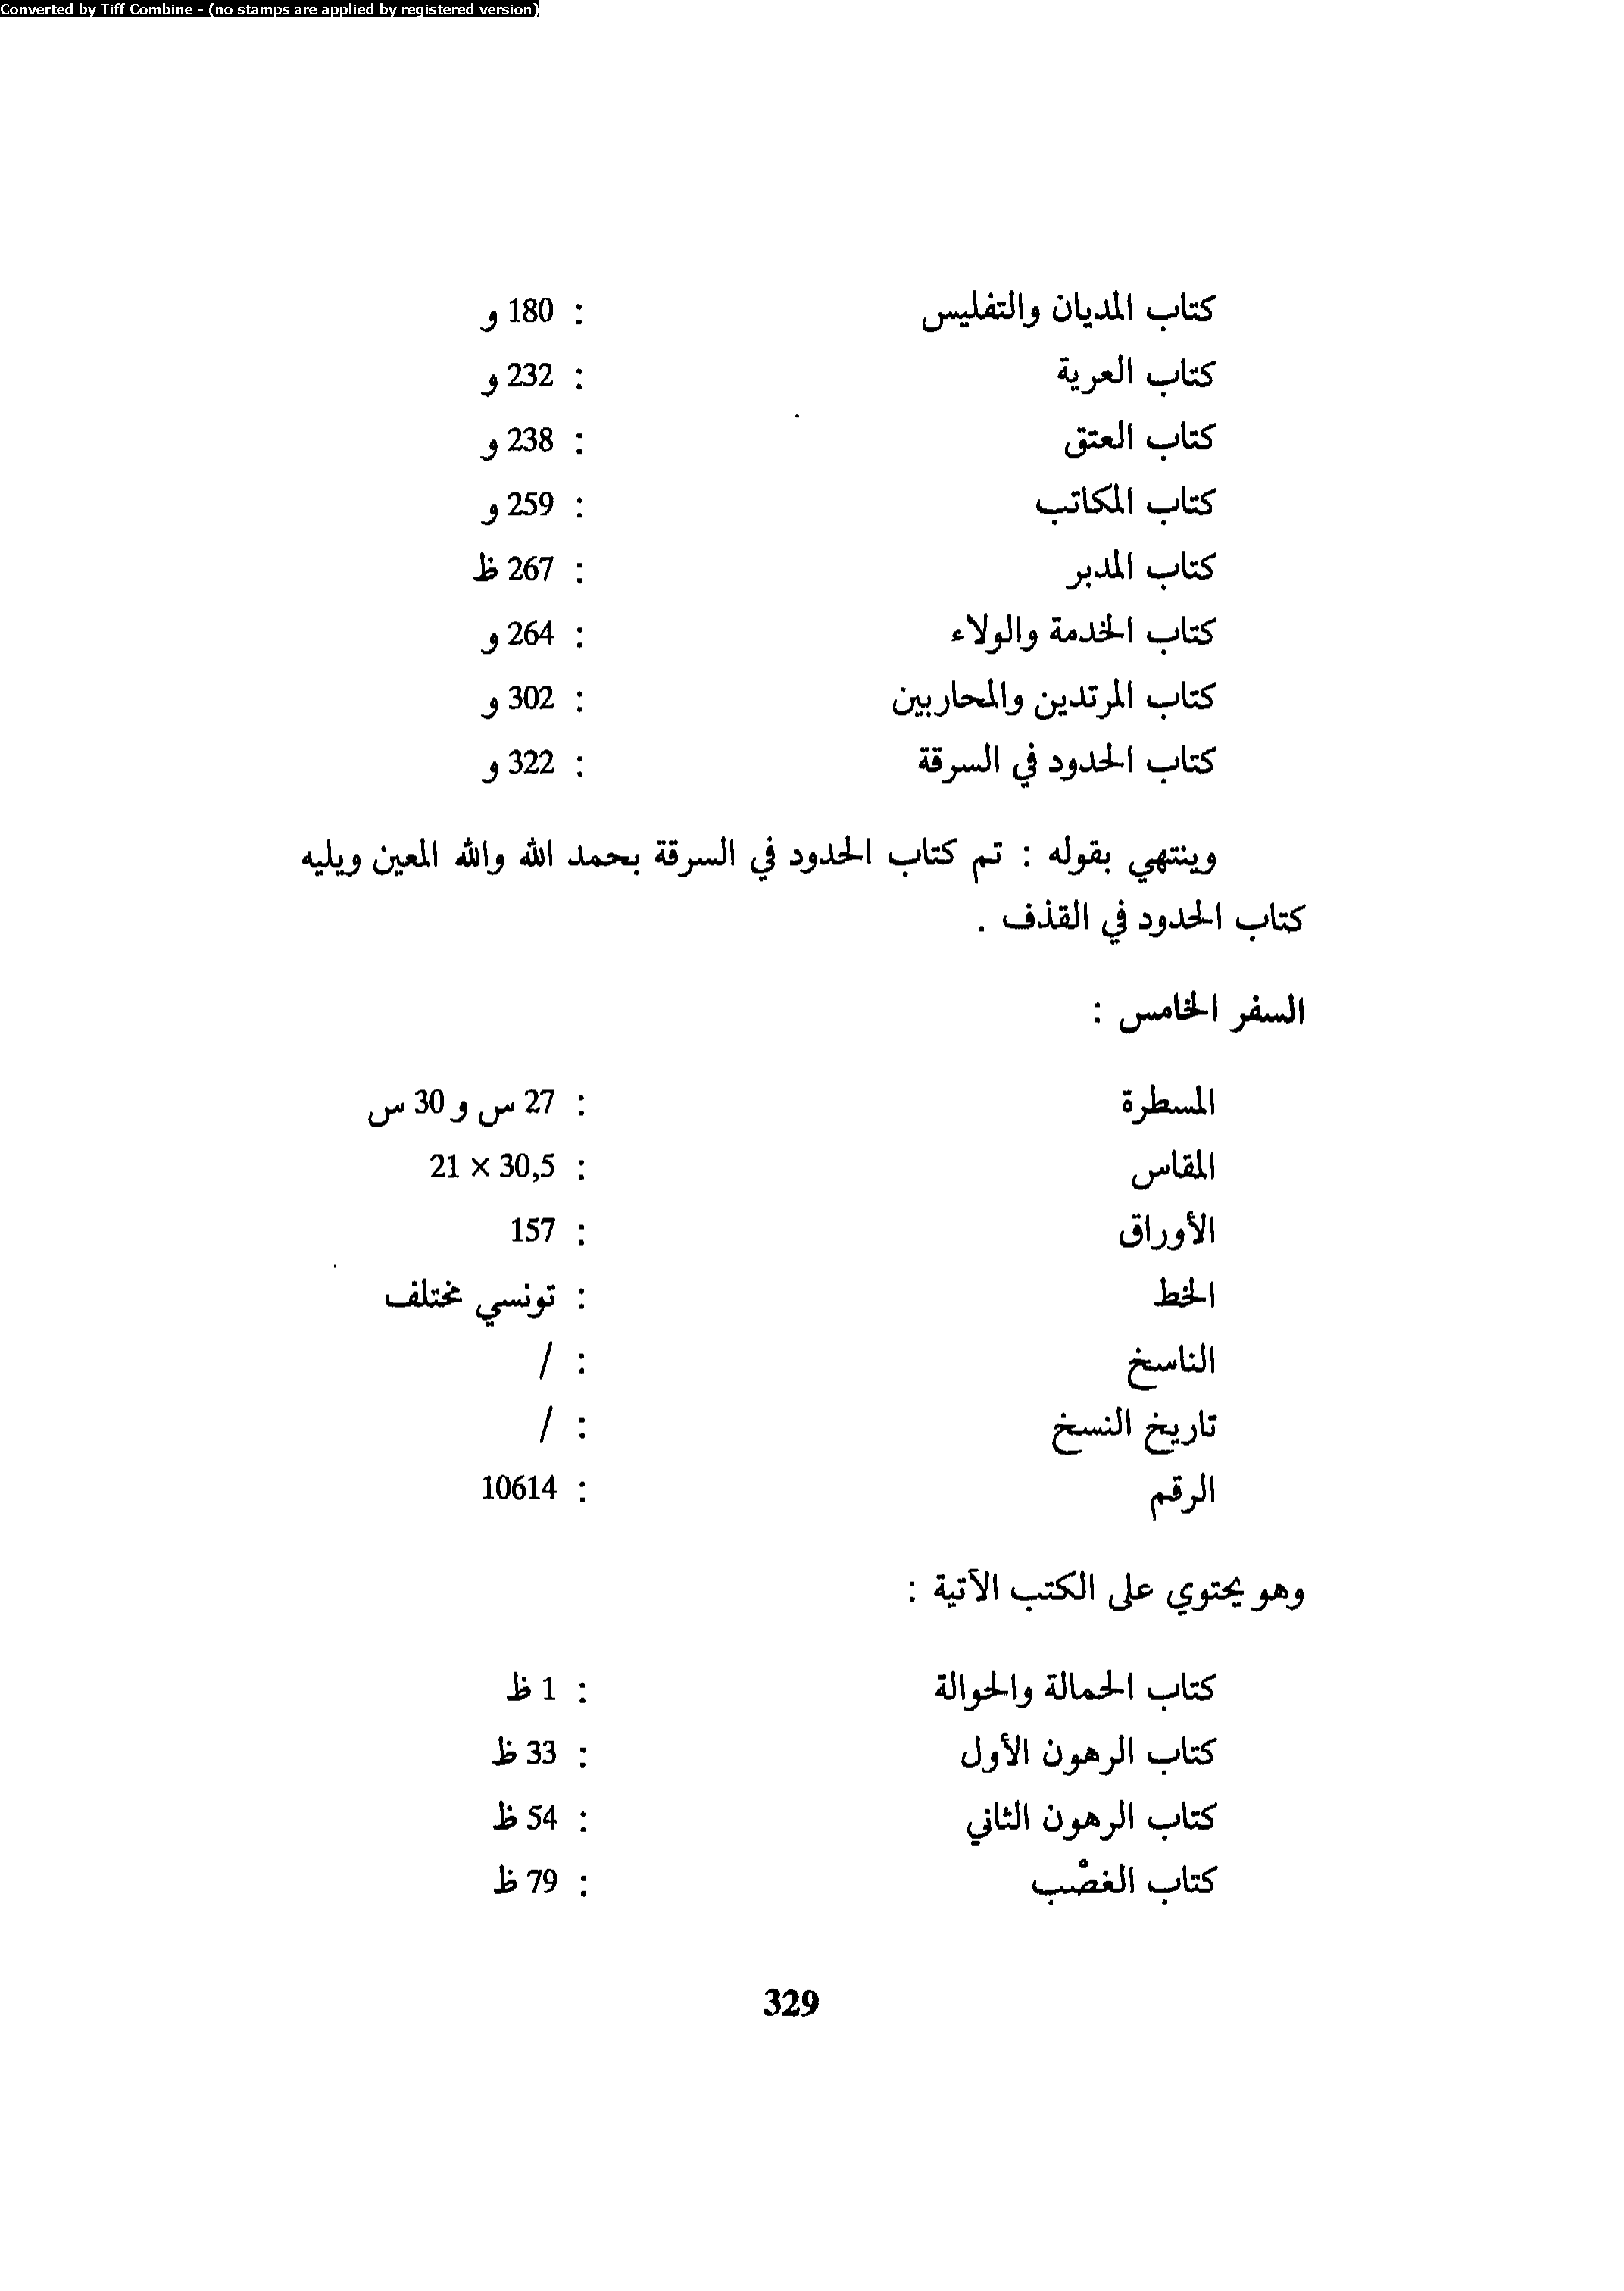 Converted by Tiff Combine - (no stamps are applied by registered version)
كتاب المديان والتفليس : 180 و
كتاب العرية : 232 و
كتاب العتق : 238 و
كتاب المكاتب : 259 و
كتاب المدبر : 267 ظ
كتاب الخدمة والولاء : 264 و
كتاب المرتدين والمحاربين : 302 و
كتاب الحدود في السرقة : 322 و
وينتهي بقوله : تم كتاب الحدود في السرقة بحمد الله والله المعين ويليه
كتاب الحدود في القذف .
السفر الخامس :
المسطرة : 27 س و 30 س
المقاس : 30,5 × 21
الأوراق : 157
الخط : تونسي مختلف
الناسخ : /
تاريخ النسخ : /
الرقم : 10614
وهو يحتوي على الكتب الآتية :
كتاب الحمالة والحوالة : 1 ظ
كتاب الرهون الأول : 33 ظ
كتاب الرهون الثاني : 54 ظ
كتاب الغصْب : 79 ظ
329